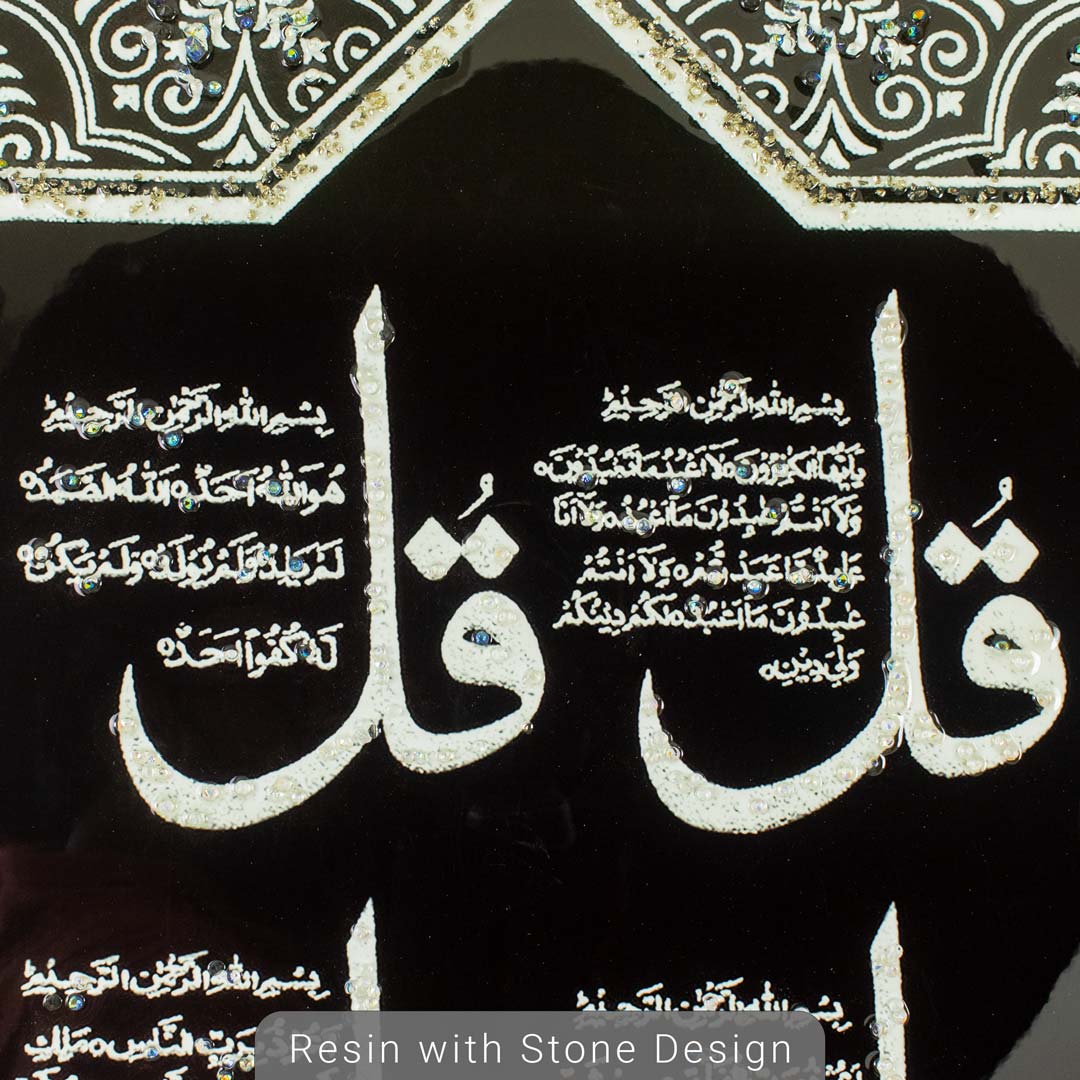 قُلْ
بِسْمِ اللهِ الرَّحْمٰنِ الرَّحِيْمِ
يٰاَيُّهَا الْكٰفِرُوْنَ ہ لَا اَعْبُدُ مَا تَعْبُدُوْنَ ہ
وَلَا اَنْتُمْ عٰبِدُوْنَ مَا اَعْبُدُ ہ وَلَا اَنَا
عَابِدٌ مَّا عَبَدْتُّمْ ہ وَلَا اَنْتُمْ
عٰبِدُوْنَ مَا اَعْبُدُ ہ لَكُمْ دِيْنُكُمْ
وَلِيَ دِيْنِ ہ
قُلْ
بِسْمِ اللهِ الرَّحْمٰنِ الرَّحِيْمِ
هُوَ اللهُ اَحَدٌ ہ اَللهُ الصَّمَدُ ہ
لَمْ يَلِدْ ہ وَلَمْ يُوْلَدْ ہ وَلَمْ يَكُنْ
لَهٗ كُفُوًا اَحَدٌ ہ
بِسْمِ اللهِ الرَّحْمٰنِ الرَّحِيْمِ
بِسْمِ اللهِ الرَّحْمٰنِ الرَّحِيْمِ
بِرَبِّ النَّاسِ ہ مَلِكِ
Resin with Stone Design